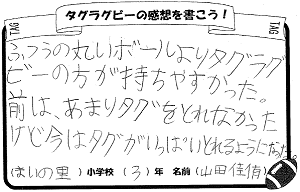 タグラグビーの感想を書こう!
TAG
TAG
ふつうの丸いボールよりタグラグ
ビーの方が持ちやすかった。
前は、あまりタグをとれなかった
けど今はタグがいっぱいとれるようになった。
(まいの里)小学校(3)年 名前(山田佳侑)